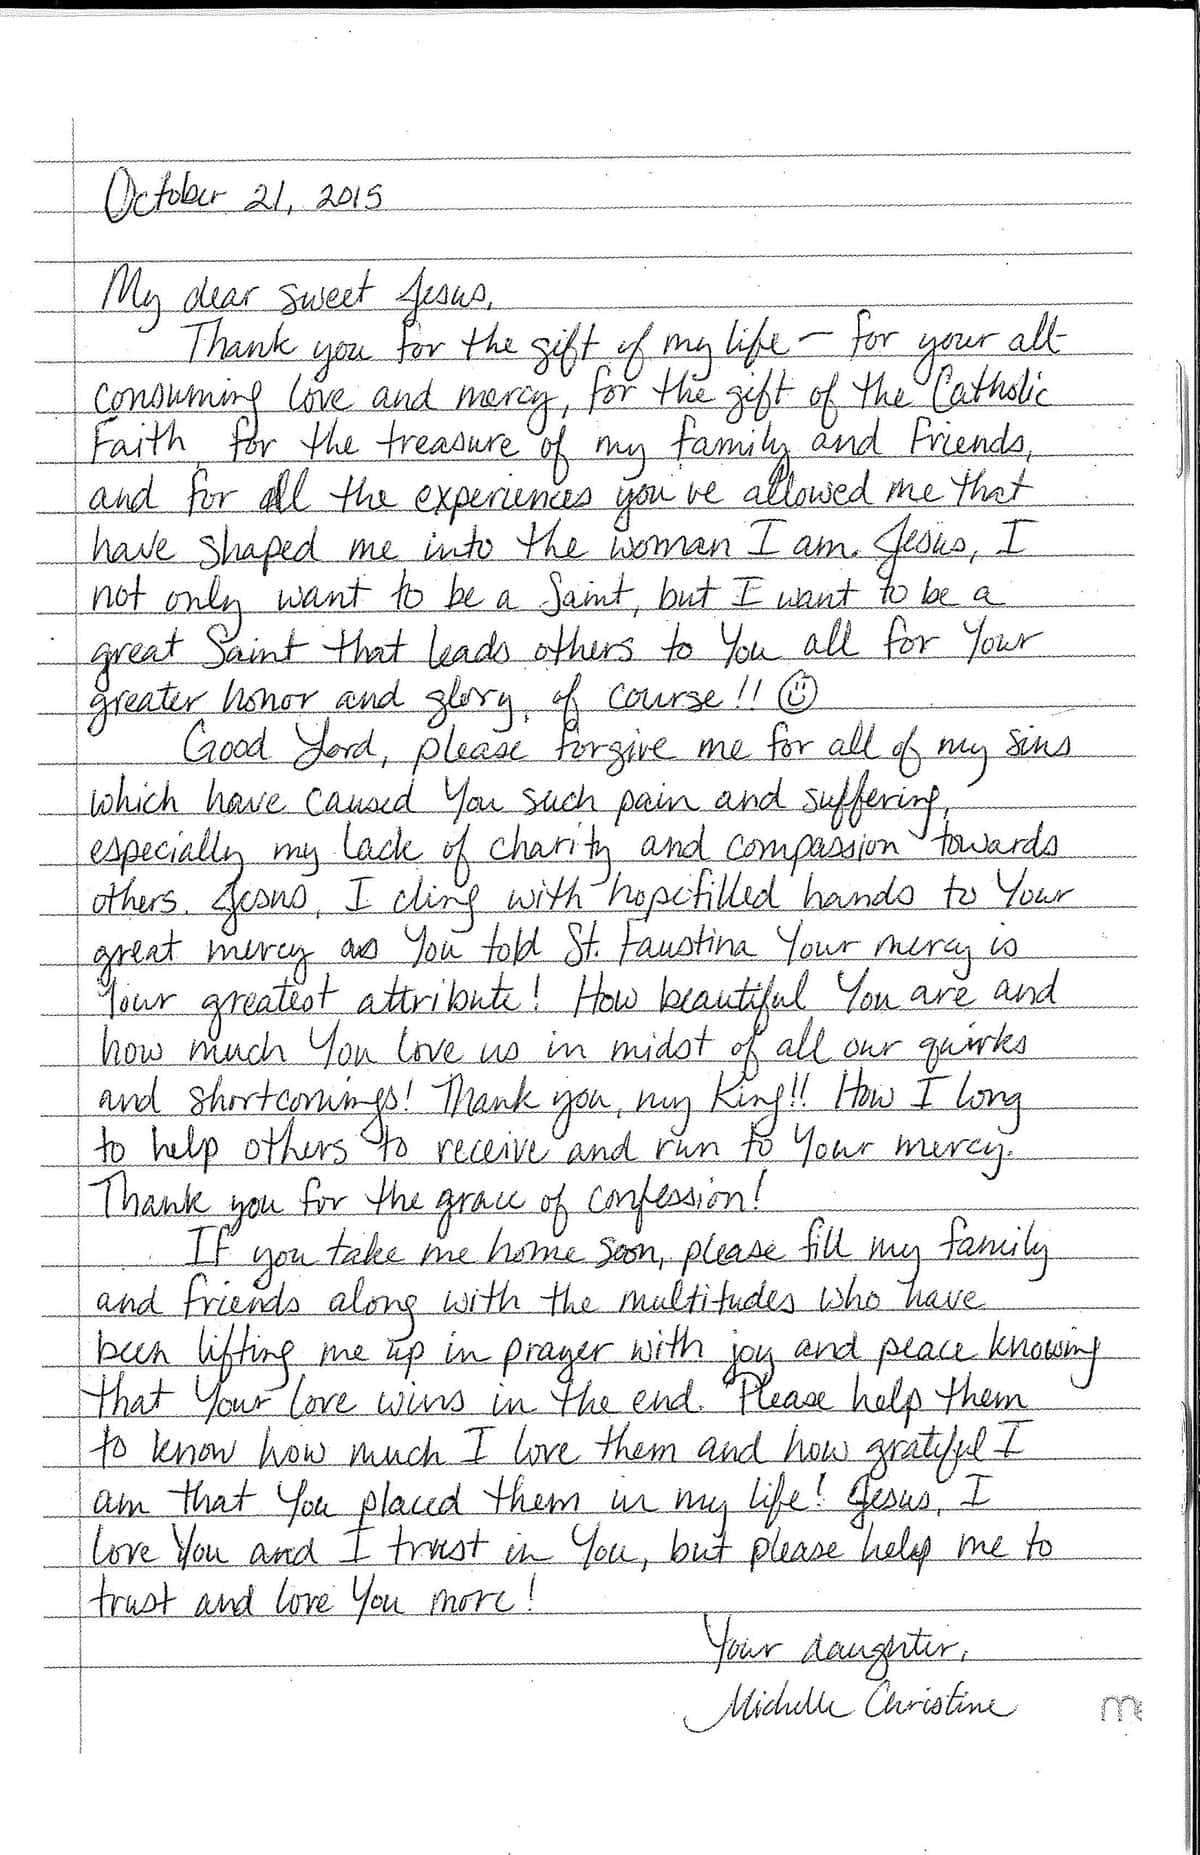 October 21, 2015
My dear sweet Jesus,
Thank you for the gift of my life – for your all-
consuming love and mercy, for the gift of the Catholic
Faith, for the treasure of my family and friends,
and for all the experiences you've allowed me that
have shaped me into the woman I am. Jesus, I
not only want to be a Saint, but I want to be a
great Saint that leads others to You all for Your
greater honor and glory, of course!! ☺
Good Lord, please forgive me for all of my sins
which have caused You such pain and suffering,
especially my lack of charity and compassion towards
others. Jesus, I cling with hopefilled hands to Your
great mercy as You told St. Faustina Your mercy is
Your greatest attribute! How beautiful You are and
how much You love us in midst of all our quirks
and shortcomings! Thank you, my King!! How I long
to help others to receive and run to Your mercy.
Thank you for the grace of confession!
If you take me home soon, please fill my family
and friends along with the multitudes who have
been lifting me up in prayer with joy and peace knowing
that Your love wins in the end. Please help them
to know how much I love them and how grateful I
am that You placed them in my life! Jesus, I
love You and I trust in You, but please help me to
trust and love You more!
Your daughter,
Michelle Christine